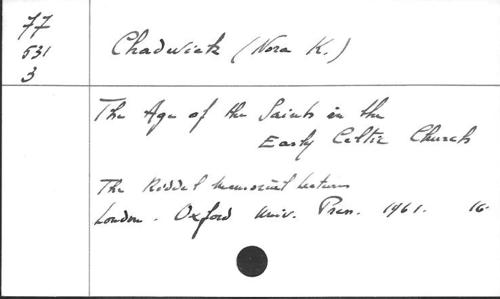 77
531
3
Chadwick (Nora K.)
The Age of the Saints in the
Early Celtic Church
The Riddel Memorial Lectures
London. Oxford Univ. Press. 1961. 16-